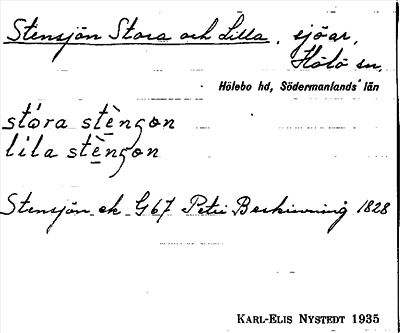 Stensjön Stora och Lilla, sjöar,
Hölö sn,
Hölebo hd, Södermanlands län
stóra stèngon
lila stèngon
Stensjön ek G67 Petri Beskrivning 1828
KARL-ELIS NYSTEDT 1935